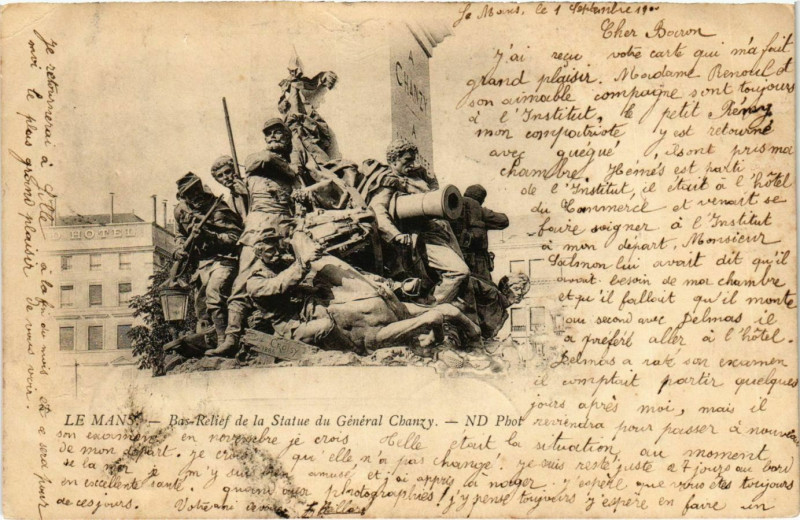 Le Mans, le 1 Septembre 190
Cher Bocron
J'ai reçu votre carte qui m'a fait
grand plaisir. Madame Renoul et
son aimable compaigne sont toujours
à l'Institut, le petit Rémy
mon compatriote y est retourné
avec quéqué, ils ont pris ma
chambre. Hémès est parti
de l'Institut, il était à l'hôtel
du Commerce et venait se
faire soigner à l'Institut
à mon départ. Monsieur
Salmon lui avait dit qu'il
avait besoin de ma chambre
et qu'il falloit qu'il monte
au second avec Delmas il
a préféré aller à l'hôtel.
Delmas a raté son examen
il comptait partir quelques
jours après moi, mais il
reviendra pour passer à nouveau
son examen en novembre je crois. Telle était la situation, au moment
de mon départ. Je crois qu'elle n'a pas changé. Je suis resté juste 27 jours au bord
de la mer je m'y suis amusé et j'ai appris la nager. J'espère que vous êtes toujours
en excellente santé. quand aux photographies! j'y pense toujours j'espère en faire un
de ces jours. Votre ami
Je retournerai à la fin du mois et ce sera pour
moi le plus grand plaisir de vous voir.
A
CHANZY
HOTEL
LE MANS. — Bas-Relief de la Statue du Général Chanzy. — ND Phot